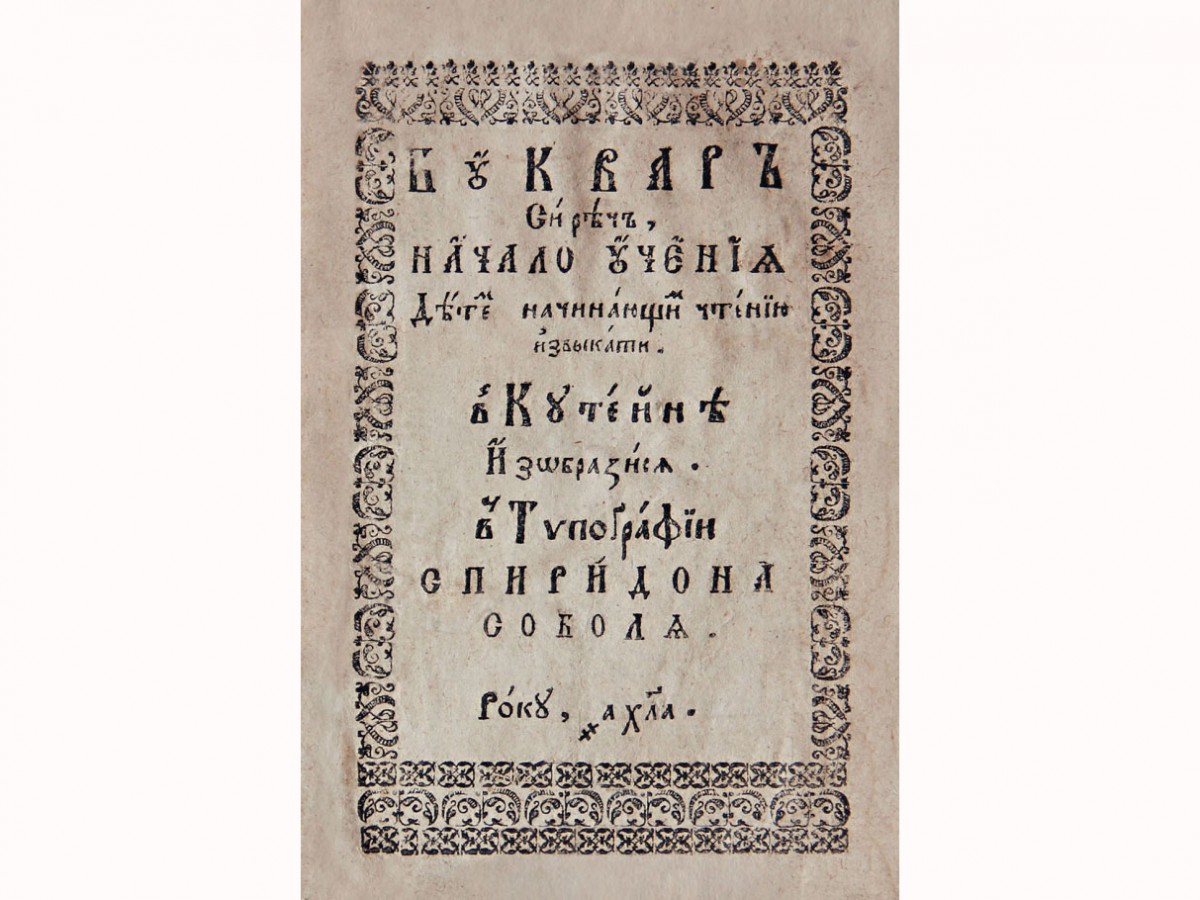 БꙋКВАРЪ
Си́ рѣчъ,
НАЧАЛО ꙋЧЕНІѦ
Дѣ́теⷨ начина́ющиⷨ чте́нїю
извыка́ти.
в̾ Кꙋте́йнѣ
Изѡбрази́сѧ.
в̾ Тѵпоґра́фїи
СПИРИ́ДОНА
СОБОЛѦ.
Ро́кꙋ, ҂а х҃ла.